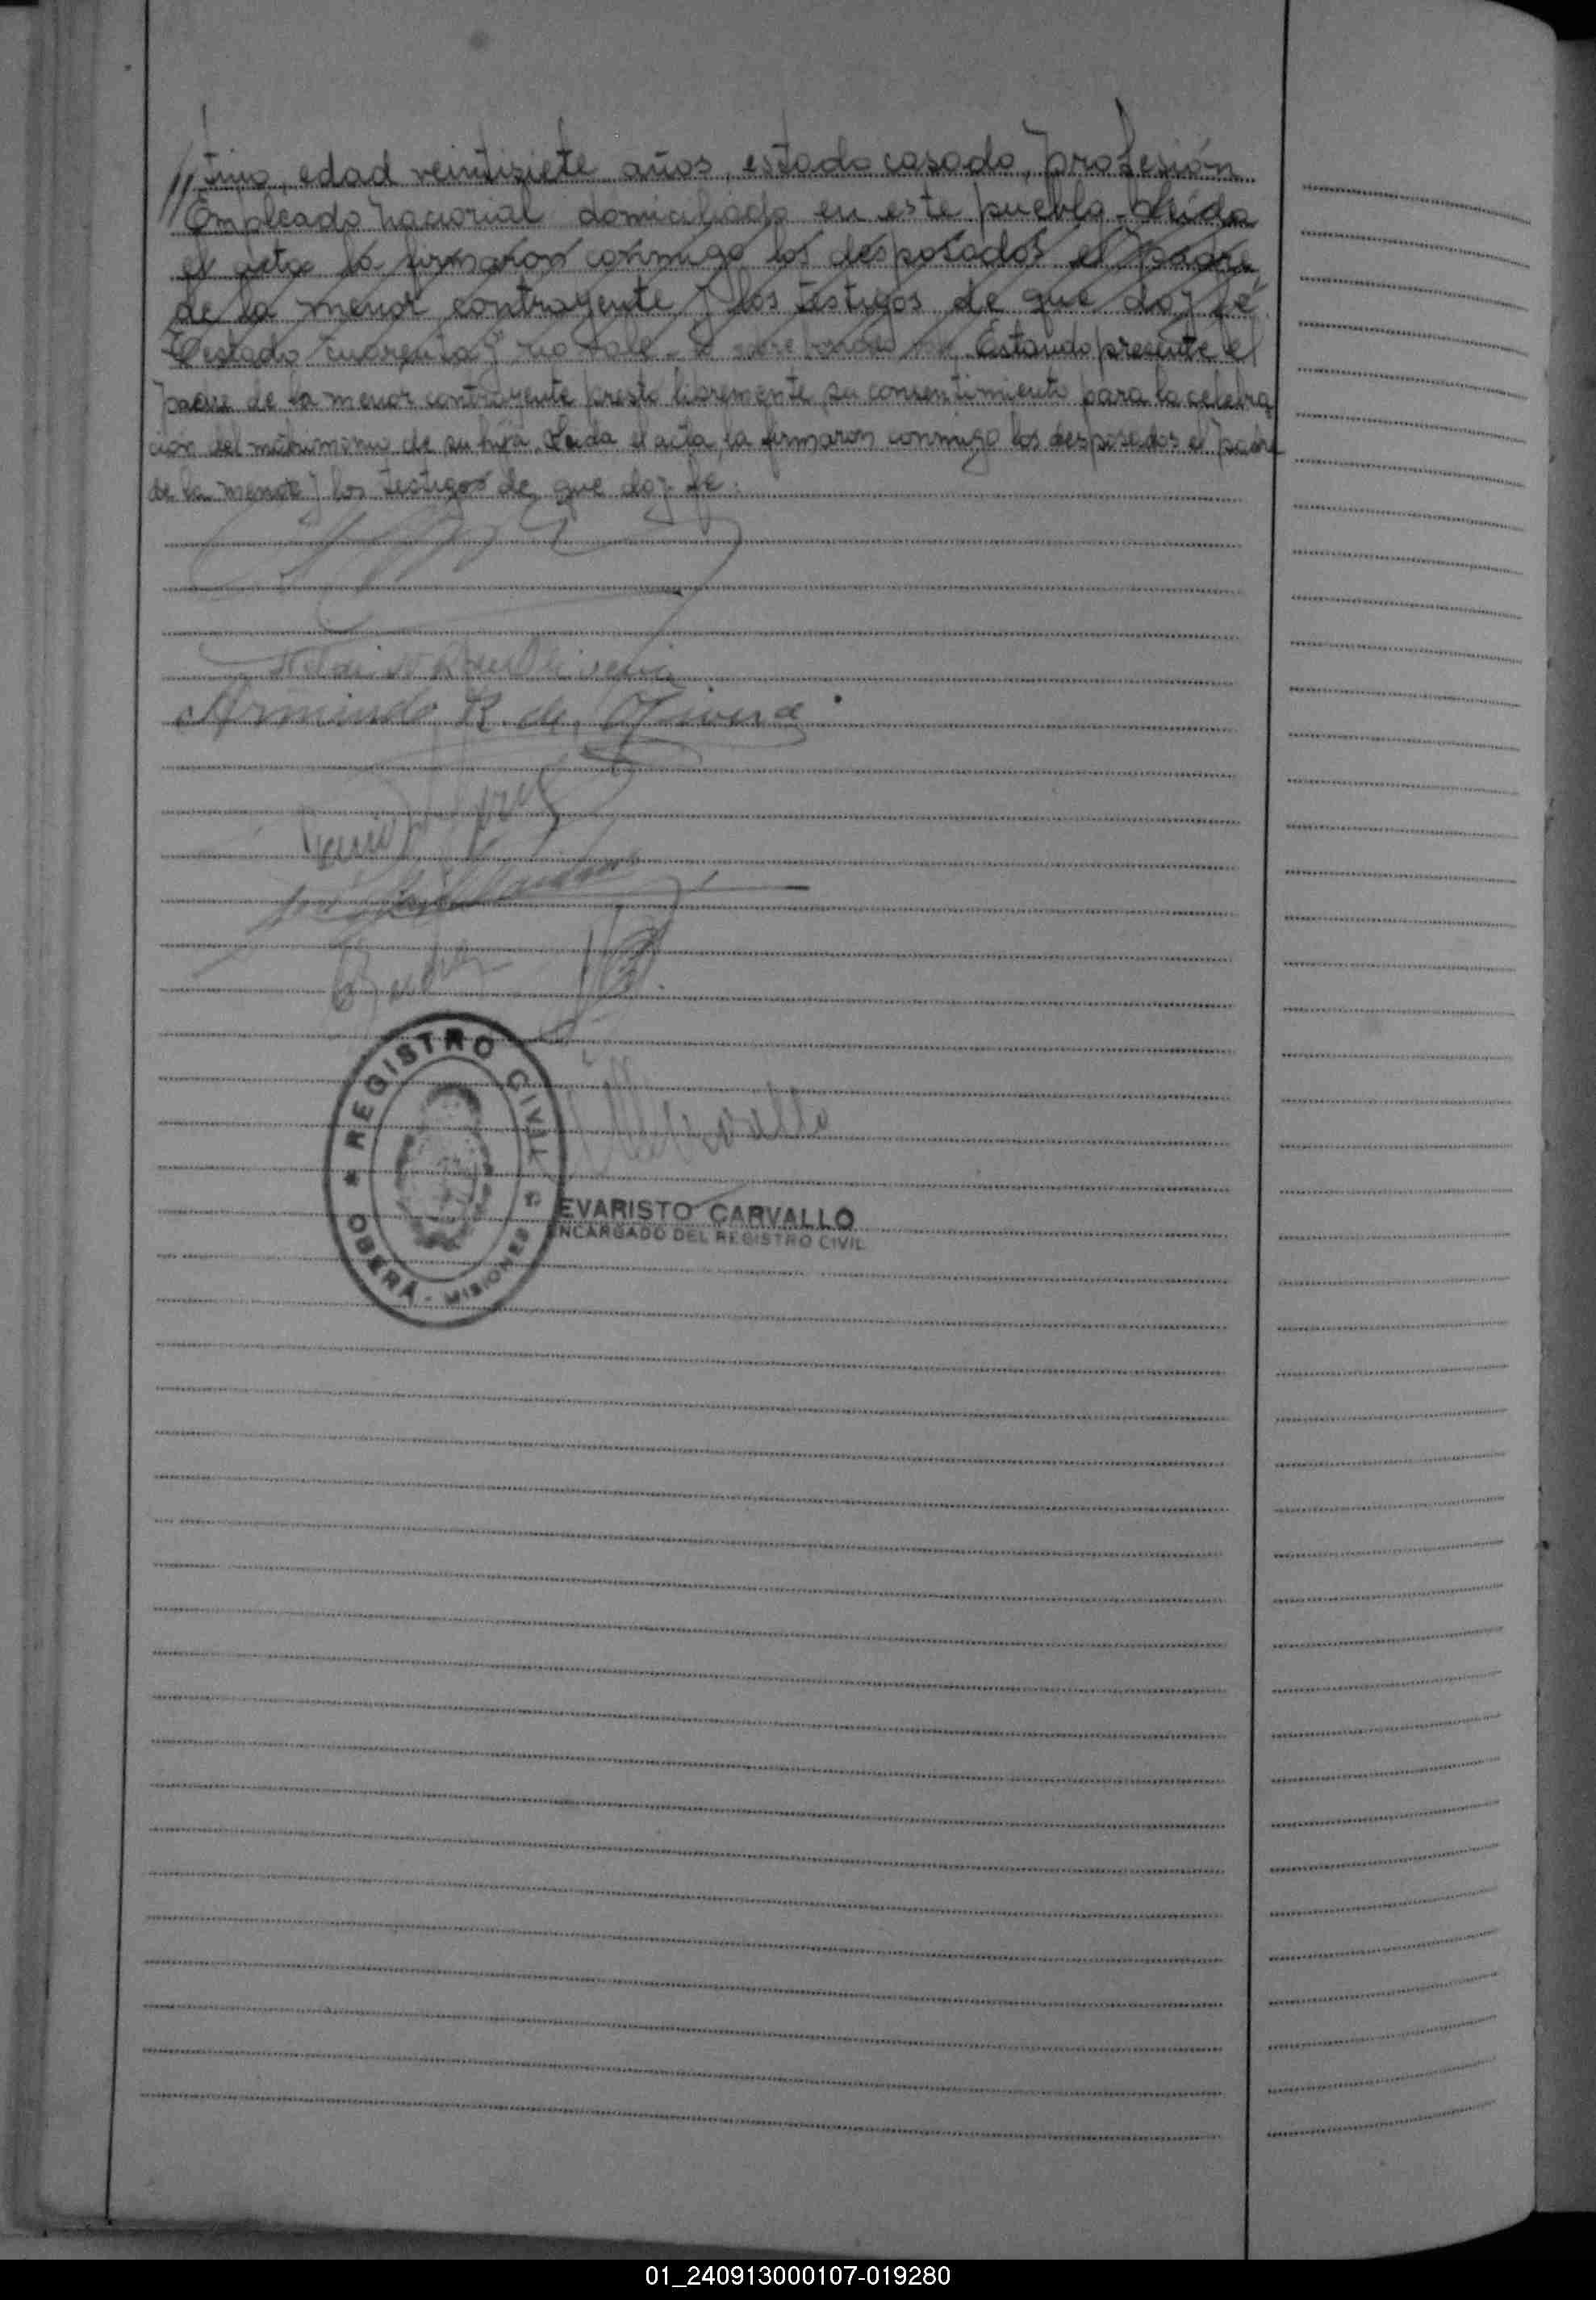 // tino, edad veintisiete años, estado casado, profesión
Empleado nacional domiciliado en este pueblo. Leida
el acta la firmaron conmigo los desposados el padre
de la menor contrayente y los testigos de que doy fé.
Testado no vale. Estando presente el
padre de la menor contrayente prestó libremente su consentimiento para la celebra
ción del matrimonio de su hija. Leida el acta, la firmaron conmigo los desposados el padre
de la menor y los testigos de que doy fe.
Armindo R. de Olivera
REGISTRO CIVIL
OBERÁ - MISIONES
EVARISTO CARVALLO
ENCARGADO DEL REGISTRO CIVIL
01_240913000107-019280